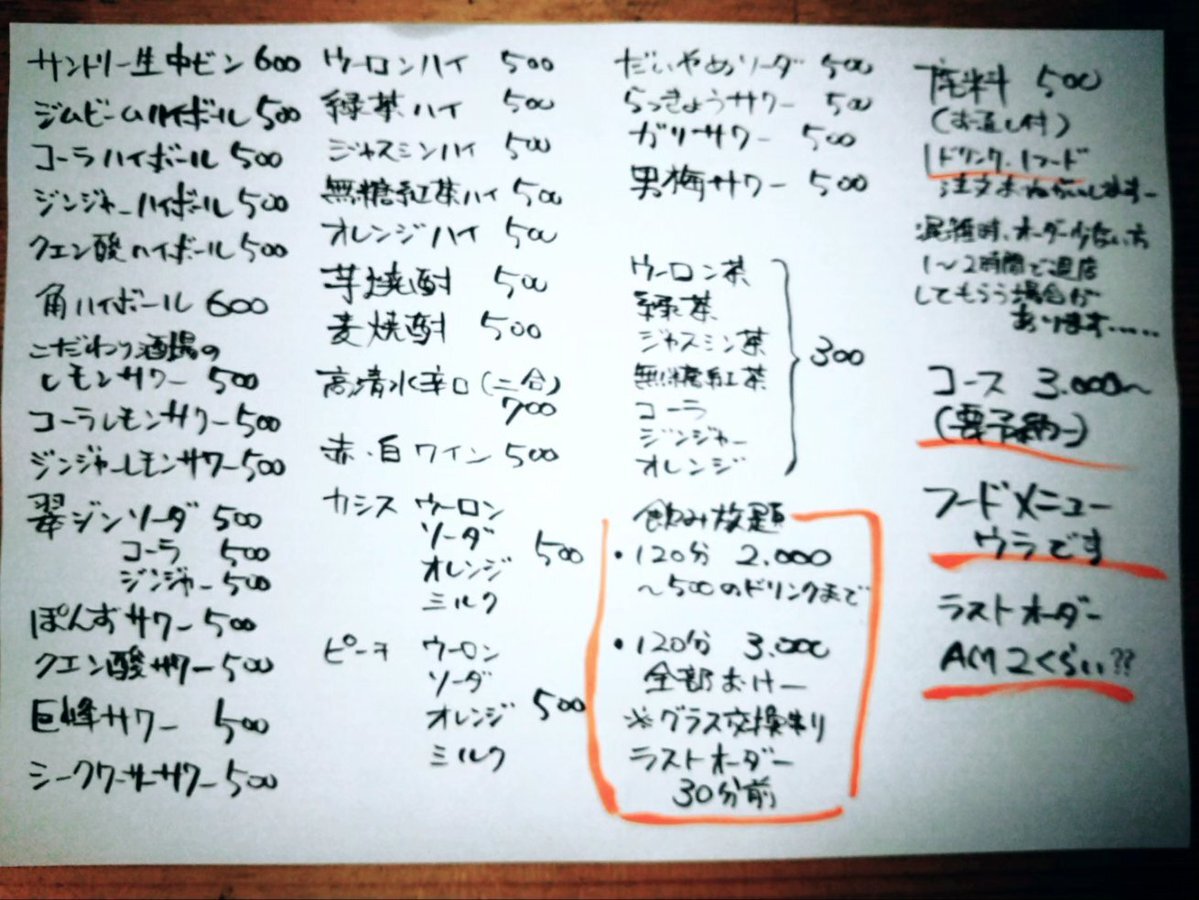 サントリー生中ビン 600
ジムビームハイボール 500
コーラハイボール 500
ジンジャーハイボール 500
クエン酸ハイボール 500
角ハイボール 600
こだわり酒場の
レモンサワー 500
コーラレモンサワー 500
ジンジャーレモンサワー 500
翠ジンソーダ 500
コーラ 500
ジンジャー 500
ぽんずサワー 500
クエン酸サワー 500
巨峰サワー 500
シークワーサーサワー 500
ウーロンハイ 500
緑茶ハイ 500
ジャスミンハイ 500
無糖紅茶ハイ 500
オレンジハイ 500
芋焼酎 500
麦焼酎 500
高清水辛口(二合)
700
赤・白ワイン 500
カシス ウーロン
ソーダ
オレンジ 500
ミルク
ピーチ ウーロン
ソーダ
オレンジ 500
ミルク
だいやめソーダ 500
らっきょうサワー 500
ガリサワー 500
男梅サワー 500
ウーロン茶
緑茶
ジャスミン茶
無糖紅茶 300
コーラ
ジンジャー
オレンジ
飲み放題
・120分 2.000
〜500のドリンクまで
・120分 3.000
全部おけー
※グラス交換制
ラストオーダー
30分前
席料 500
(お通し付)
1ドリンク、1フード
注文おねがいします〜
混雑時、オーダー少ない方
1〜2時間で退店
してもらう場合が
あります……
コース 3.000〜
(要予約〜)
フードメニュー
ウラです
ラストオーダー
AM2くらい??